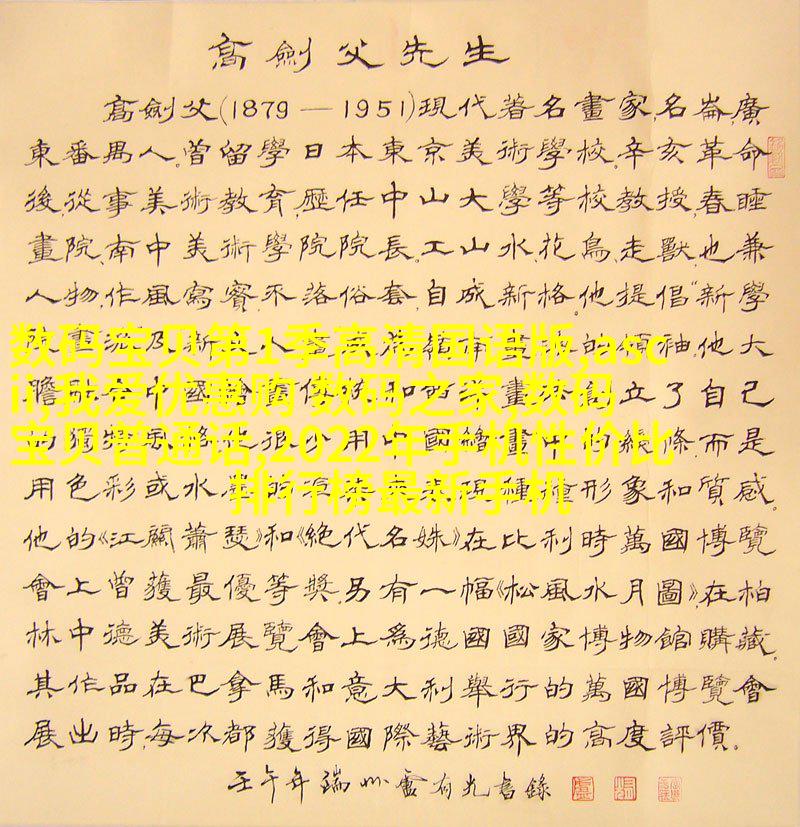 高劍父先生
高劍父(1879—1951)現代著名畫家,名崙,廣
東番禺人。曾留學日本東京美術學校。辛亥革命
後,從事美術教育,歷任中山大學等校教授,春睡
畫院、南中美術學院院長。工山水、花鳥、走獸,也兼
人物,作風寫實,不落俗套,自成新格。他提倡“新學
数码宝贝第1季高清国语版,asc
ii,我爱优惠购 数码之家,数码
宝贝普通话,2022年手机性价比
排行榜最新手机
的領袖。他大
立了自己
而是
用色彩或水 形象和質感。
他的《江關蕭瑟》和《絕代名姝》在比利時萬國博覽
會上曾獲最優等獎,另有一幅《松風水月圖》,在柏
林中德美術展覽會上爲德國國家博物館購藏。
其作品在巴拿馬和意大利舉行的萬國博覽會
展出時,每次都獲得國際藝術界的高度評價。
壬午年端州盧有光書錄